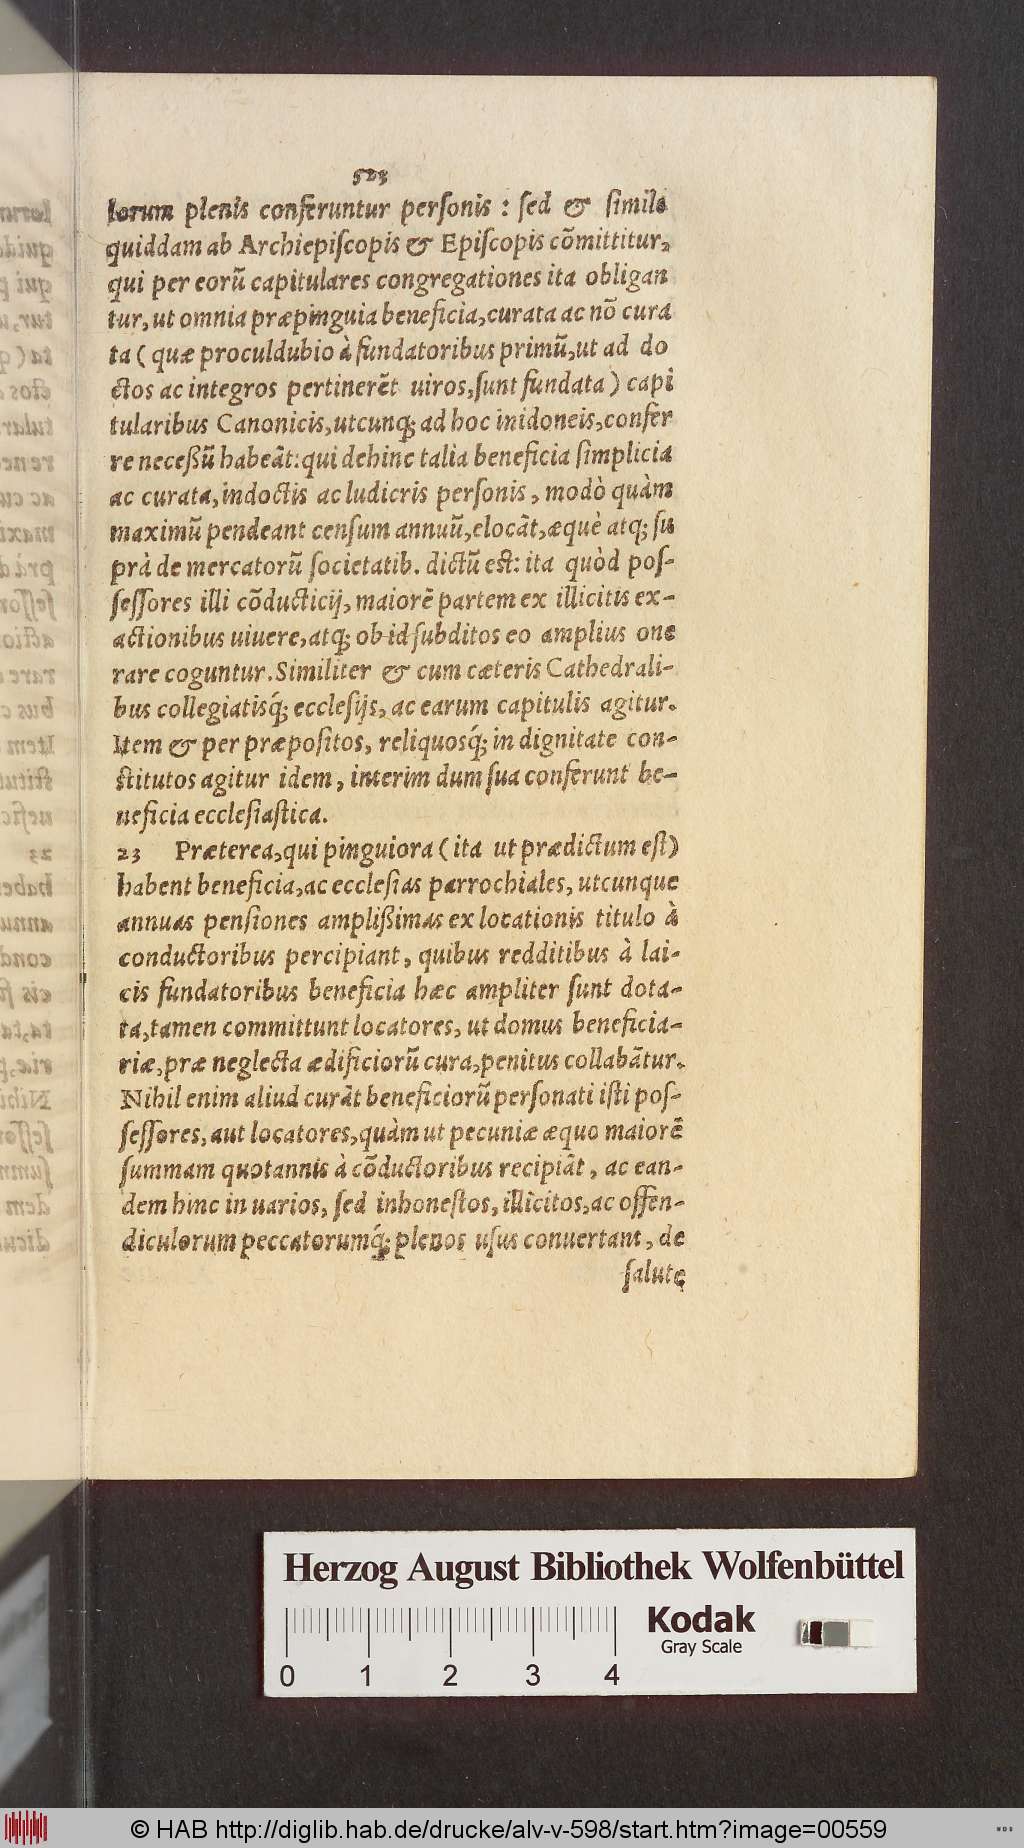 523
lorum plenis conferuntur personis : sed & simile
quiddam ab Archiepiscopis & Episcopis cõmittitur,
qui per eorũ capitulares congregationes ita obligan
tur, ut omnia præpinguia beneficia, curata ac nõ cura
ta ( quæ proculdubio à fundatoribus primũ, ut ad do
ctos ac integros pertinerẽt uiros, sunt fundata ) capi
tularibus Canonicis, utcunq; ad hoc inidoneis, confer
re neceßũ habeãt: qui dehinc talia beneficia simplicia
ac curata, indoctis ac ludicris personis, modò quàm
maximũ pendeant censum annuũ, elocãt, æquè atq; su
prà de mercatorũ societatib. dictũ est: ita quòd pos-
sessores illi cõducticij, maiorẽ partem ex illicitis ex-
actionibus uiuere, atq; ob id subditos eo amplius one
rare coguntur. Similiter & cum cæteris Cathedrali-
bus collegiatisq́; ecclesijs, ac earum capitulis agitur.
Item & per præpositos, reliquosq́; in dignitate con-
stitutos agitur idem, interim dum sua conferunt be-
neficia ecclesiastica.
23 Præterea, qui pinguiora ( ita ut prædictum est )
habent beneficia, ac ecclesias parrochiales, utcunque
annuas pensiones amplißimas ex locationis titulo à
conductoribus percipiant, quibus redditibus à lai-
cis fundatoribus beneficia hæc ampliter sunt dota-
ta, tamen committunt locatores, ut domus beneficia-
riæ, præ neglecta ædificiorũ cura, penitus collabãtur.
Nihil enim aliud curãt beneficiorũ personati isti pos-
sessores, aut locatores, quàm ut pecuniæ æquo maiorẽ
summam quotannis à cõductoribus recipiãt, ac ean-
dem hinc in uarios, sed inhonestos, illicitos, ac offen-
diculorum peccatorumq́; plenos usus conuertant, de
salute
Herzog August Bibliothek Wolfenbüttel
Kodak
Gray Scale
0 1 2 3 4
© HAB http://diglib.hab.de/drucke/alv-v-598/start.htm?image=00559